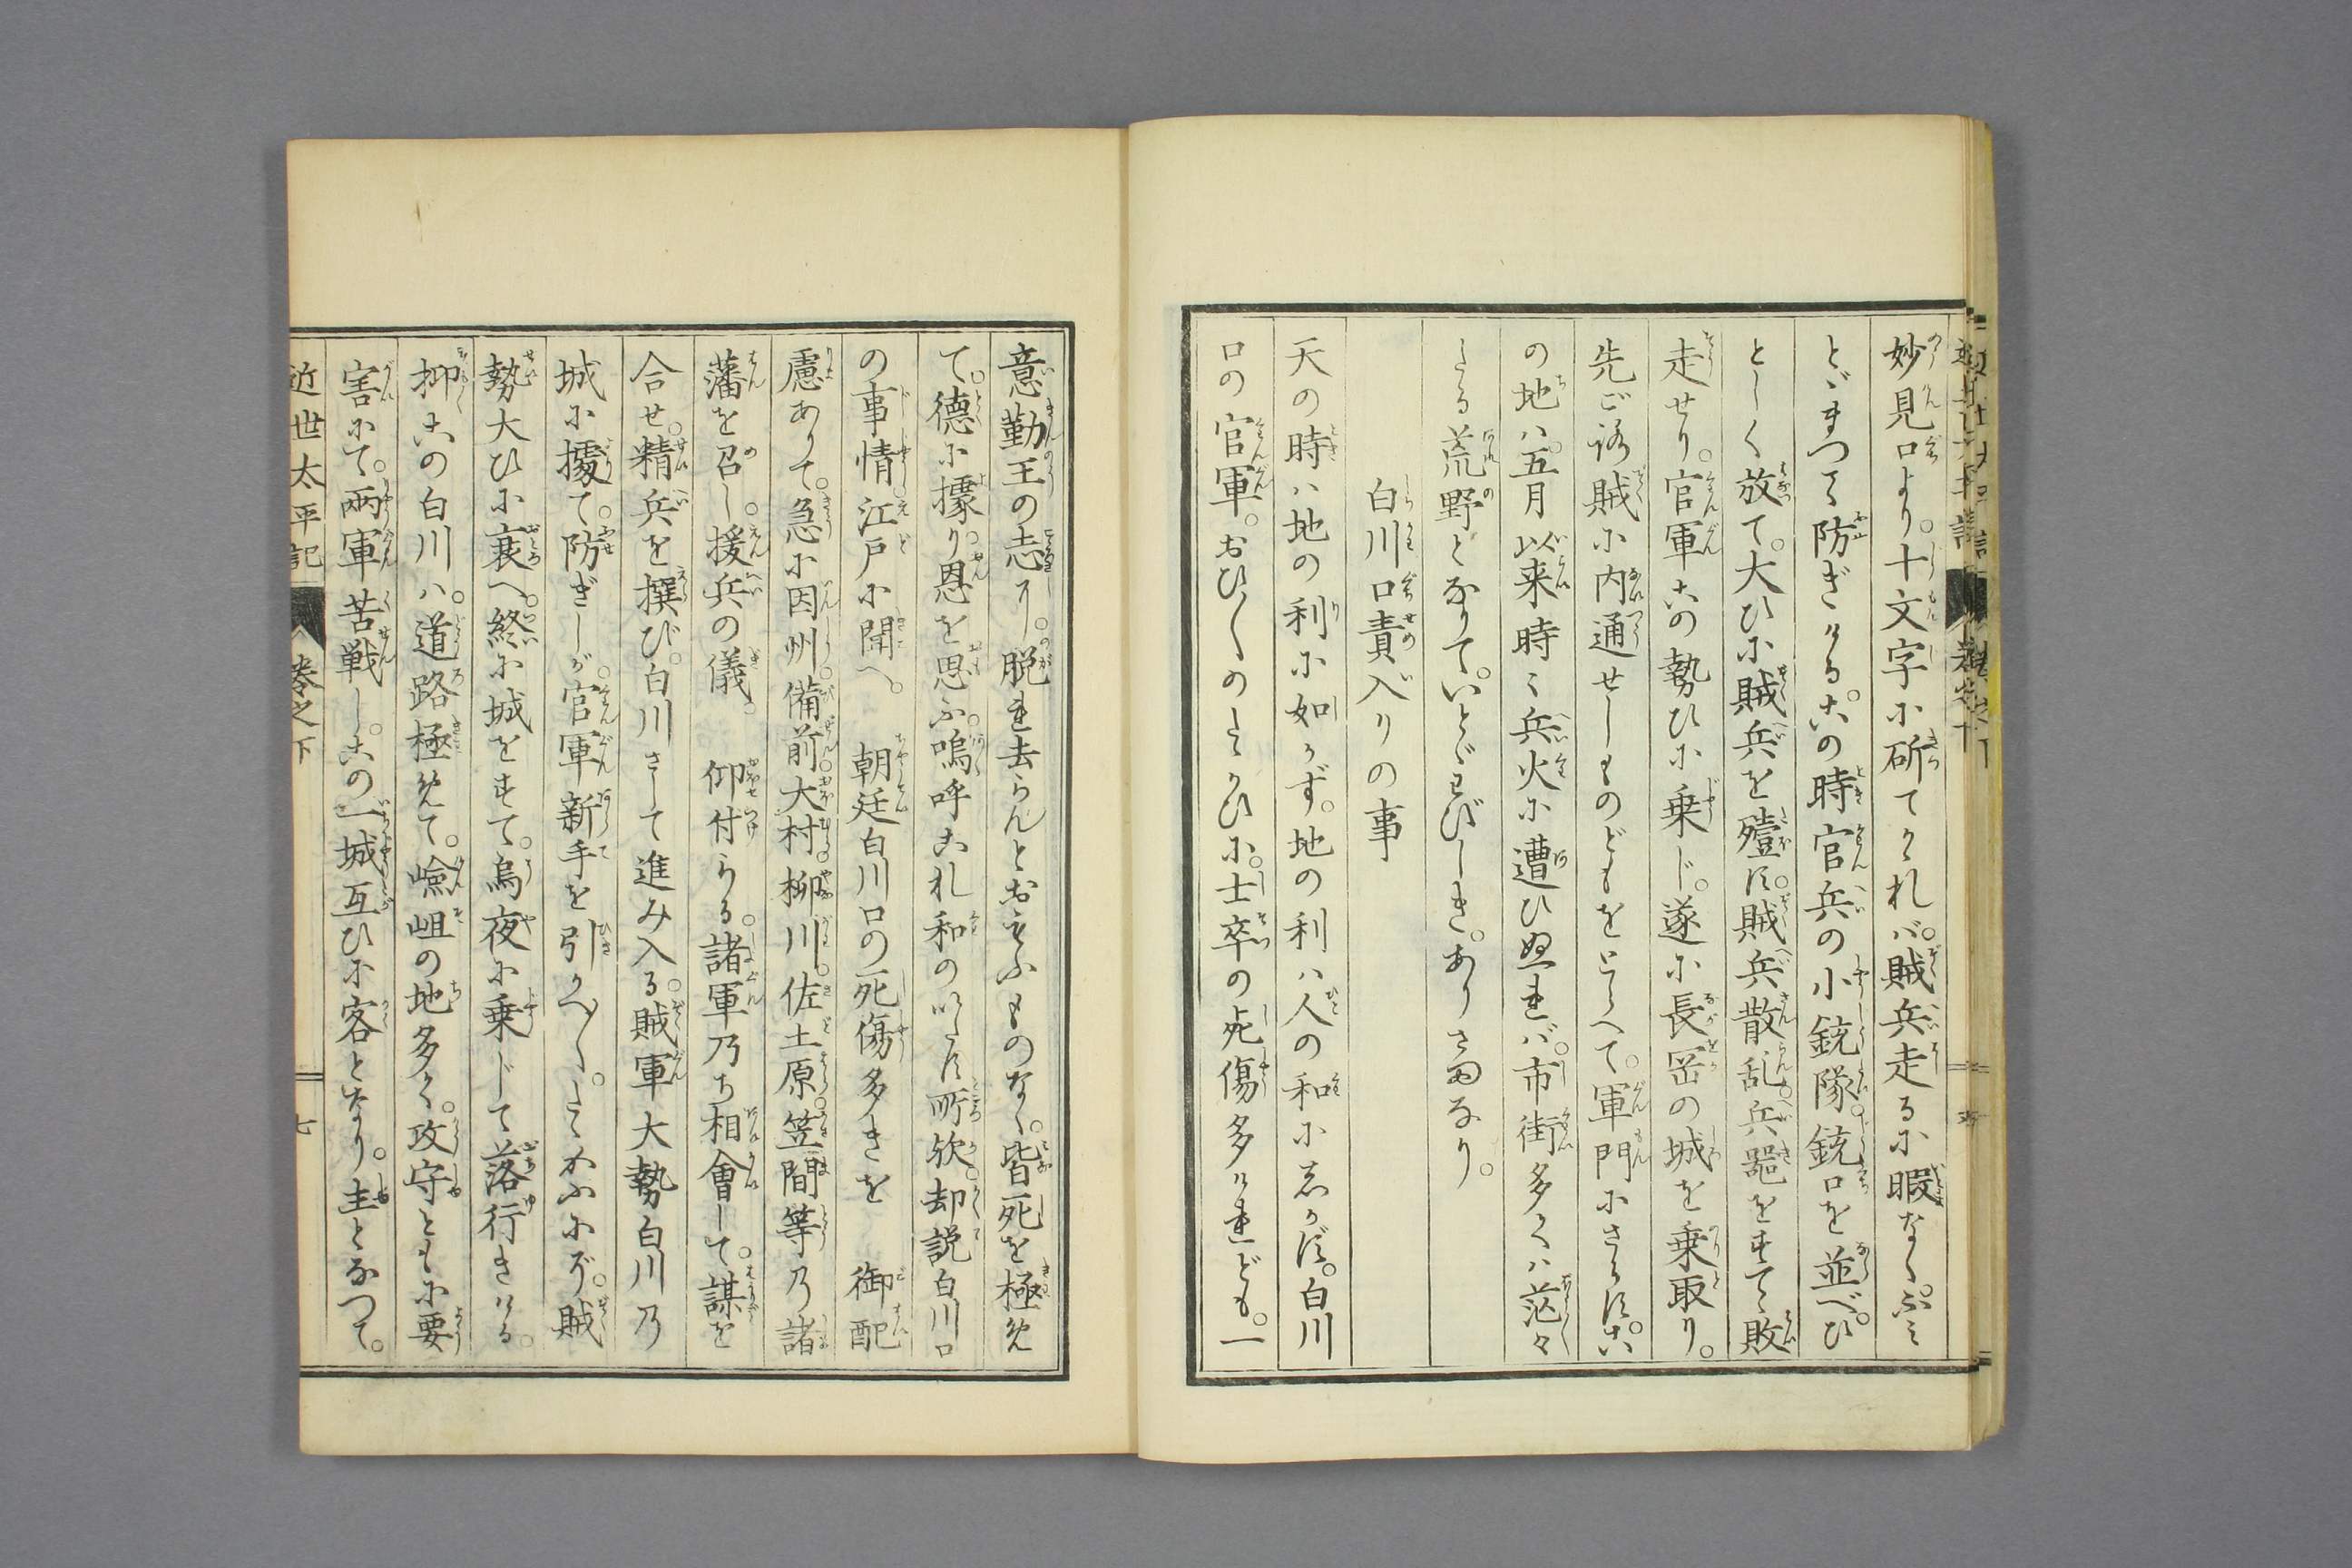 妙見口より。十文字に斫てかゝれバ。賊兵走るに暇なく。ふミ
とゞまつて防ぎける。この時官兵の小銃隊。銃口を並べ。ひ
としく放て。大ひに賊兵を殪す。賊兵散乱。兵噐をすてゝ敗
走せり。官軍この勢ひに乗じ。遂に長岡の城を乗取り。
先ごろ賊に内通せしものどもをとらへて。軍門にさらす。こ
の地ハ。五月以来時々兵火に遭ひぬれバ。市街多くハ茫々
たる荒野となりて。いとゞわびしき。ありさまなり。
白川口責入りの事
天の時ハ地の利に如かず。地の利ハ人の和にしかず。白川
口の官軍。おひ〳〵のたゝかひに。士卒の死傷多けれども。一
意勤王の志し。脱れ去らんとおもふものなく。皆死を極め
て。徳に據り。恩を思ふ。嗚呼これ和のいたす所欤。却説白川口
の事情。江戸に聞へ。朝廷白川口の死傷多きを御配
慮ありて。急に因州。備前。大村。柳川。佐土原。笠間等乃諸
藩を召し。援兵の儀。仰付らる。諸軍乃ち相會して。謀を
合せ。精兵を撰び。白川さして進み入る。賊軍大勢白川乃
城に據て。防ぎしが。官軍新手を引かへ〳〵。たゝかふにぞ。賊
勢大ひに衰へ。終に城をすて。烏夜に乗じて落行きける。
抑この白川ハ。道路極めて。嶮岨の地多く。攻守ともに要
害にて。兩軍苦戦し。この一城互ひに客となり。主となつて。
近世太平記 巻之下 七